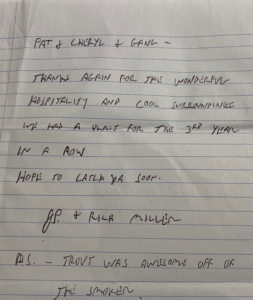 PAT & CHERYL & GANG -
THANKS AGAIN FOR THE WONDERFUL
HOSPITALITY AND COOL SURROUNDINGS
WE HAD A BLAST FOR THE 3RD YEAR
IN A ROW.
HOPE TO CATCH YA SOON.
J.P. & RICA MILLER
P.S. - TROUT WAS AWESOME OFF OF
THE SMOKER.